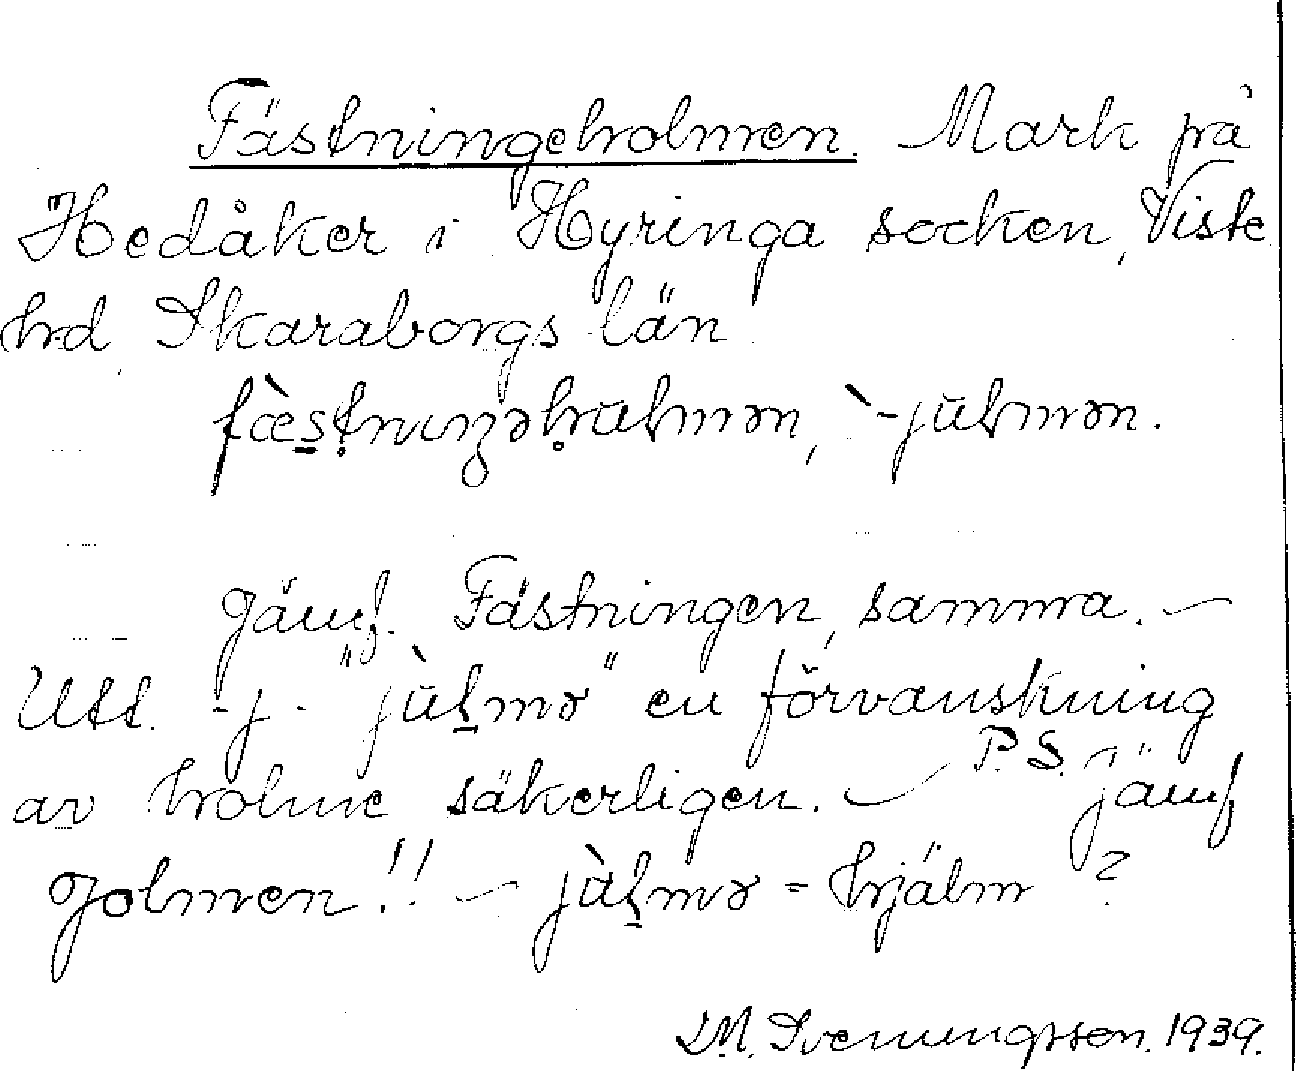 Fästningeholmen. Mark på
Hedåker i Hyringa socken, Viste
hd, Skaraborgs län.
fæ̀stnıŋəhʉlmən, `-jʉlmən.
Jämf. Fästningen, samma. —
Utt. -j- "jʉ̀lmə" en förvanskning
av holme säkerligen. — P.S. jämf
Jolmen!! — jʉ̀lmə = hjälm ?
L.M. Svenungsson. 1939.